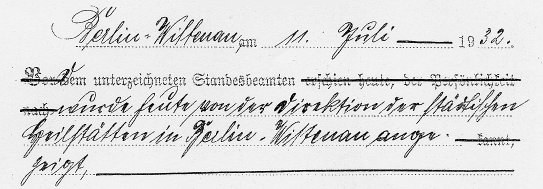 Berlin-Wittenau, am 11. Juli 1932.
Vor dem unterzeichneten Standesbeamten erschien heute, der Persönlichkeit
nach wurde heute, von der Direktion der städtischen
Heilstätten in Berlin-Wittenau ange- kannt,
zeigt,